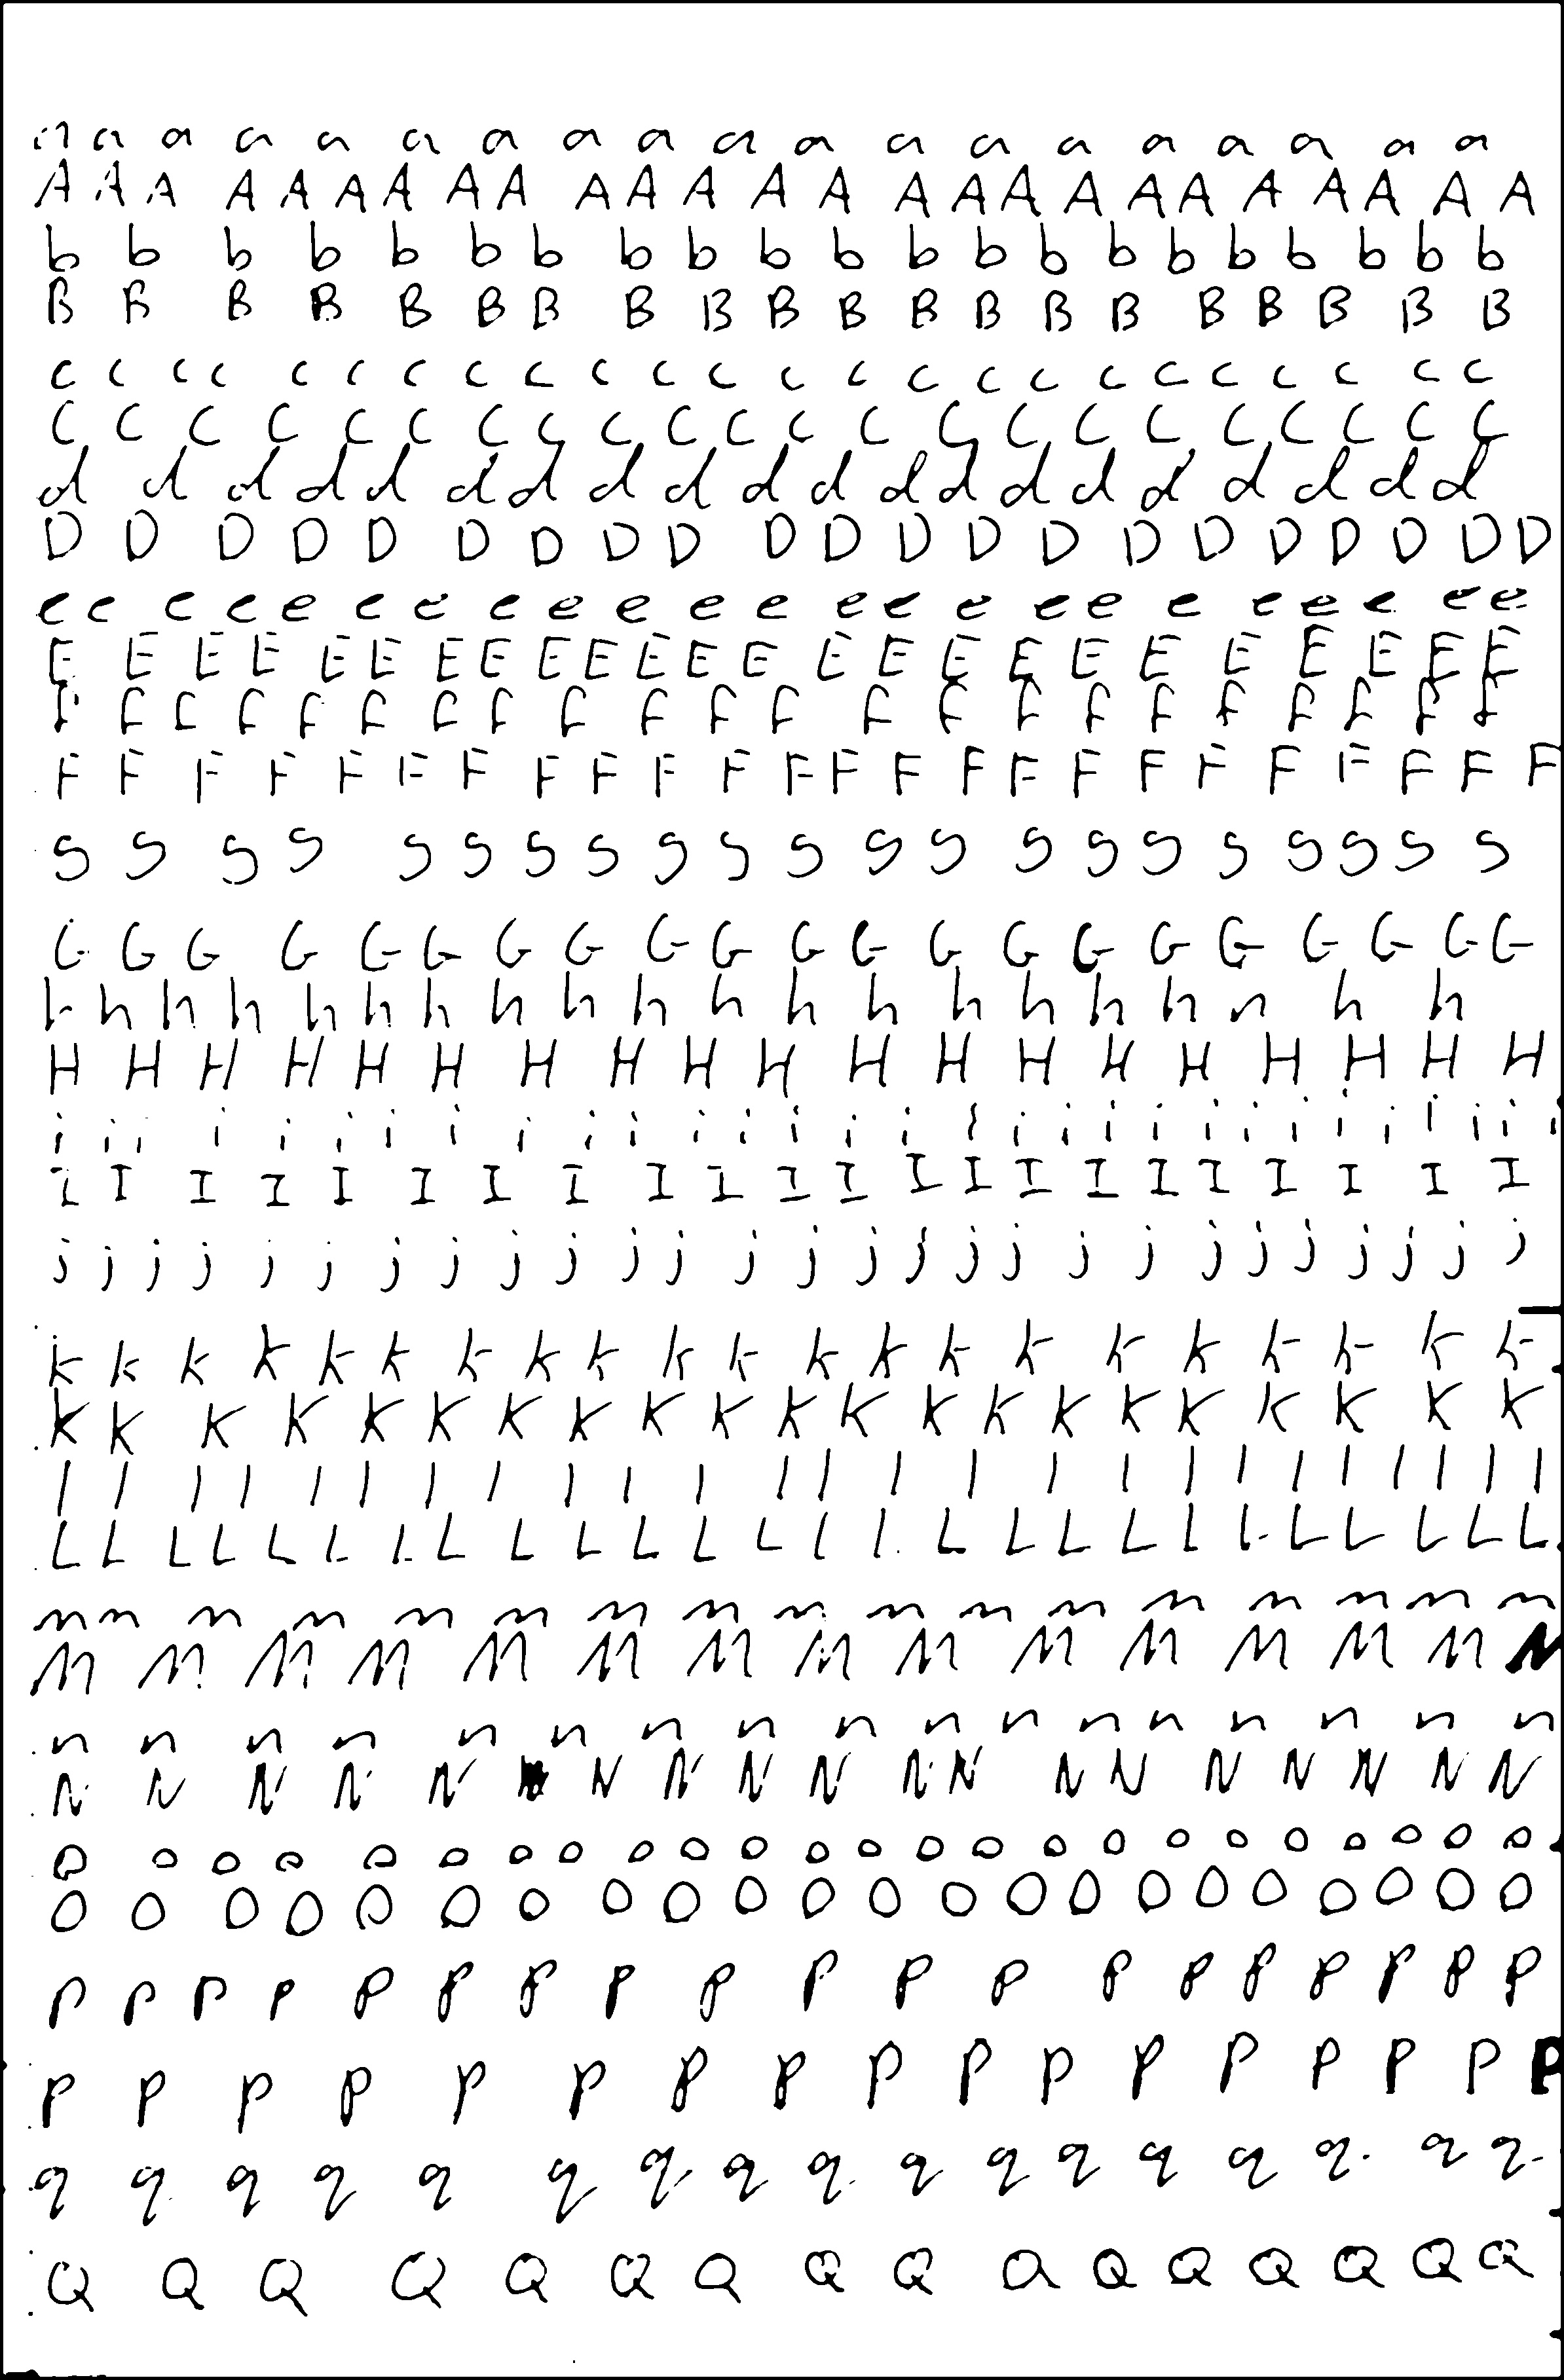 a a a a a a a a a a a a a a a a a a a
A A A A A A A A A A A A A A A A A A A A A A A A A
b b b b b b b b b b b b b b b b b b b b b
B B B B B B B B B B B B B B B B B B B B
c c c c c c c c c c c c c c c c c c c c c c c c
C C C C C C C C C C C C C C C C C C C C C C
d d d d d d d d d d d d d d d d d d d d
D D D D D D D D D D D D D D D D D D D D D
e e e e e e e e e e e e e e e e e e e e e e e
E E E E E E E E E E E E E E E E E E E E E E E E
f f f f f f f f f f f f f f f f f f f f f f
F F F F F F F F F F F F F F F F F F F F F F F F
S S S S S S S S S S S S S S S S S S S S S
G G G G G G G G G G G G G G G G G G G G G
h h h h h h h h h h h h h h h h h h h h
H H H H H H H H H H H H H H H H H H H
i i i i i i i i i i i i i i i i i i i i i i i i i i i i i
I I I I I I I I I I I I I I I I I I I I I I
j j j j j j j j j j j j j j j j j j j j j j j j j j
k k k k k k k k k k k k k k k k k k k k k
K K K K K K K K K K K K K K K K K K K K K
l l l l l l l l l l l l l l l l l l l l l l l l
L L L L L L L L L L L L L L L L L L L L L L L L
m m m m m m m m m m m m m m m m
M M M M M M M M M M M M M M
n n n n n n n n n n n n n n n n n
N N N N N N N N N N N N N N N N N N
o o o o o o o o o o o o o o o o o o o o o o o
O O O O O O O O O O O O O O O O O O O O O O
p p p p p p p p p p p p p p p p p p p
P P P P P P P P P P P P P P P P P
q q q q q q q q q q q q q q q q q
Q Q Q Q Q Q Q Q Q Q Q Q Q Q Q Q